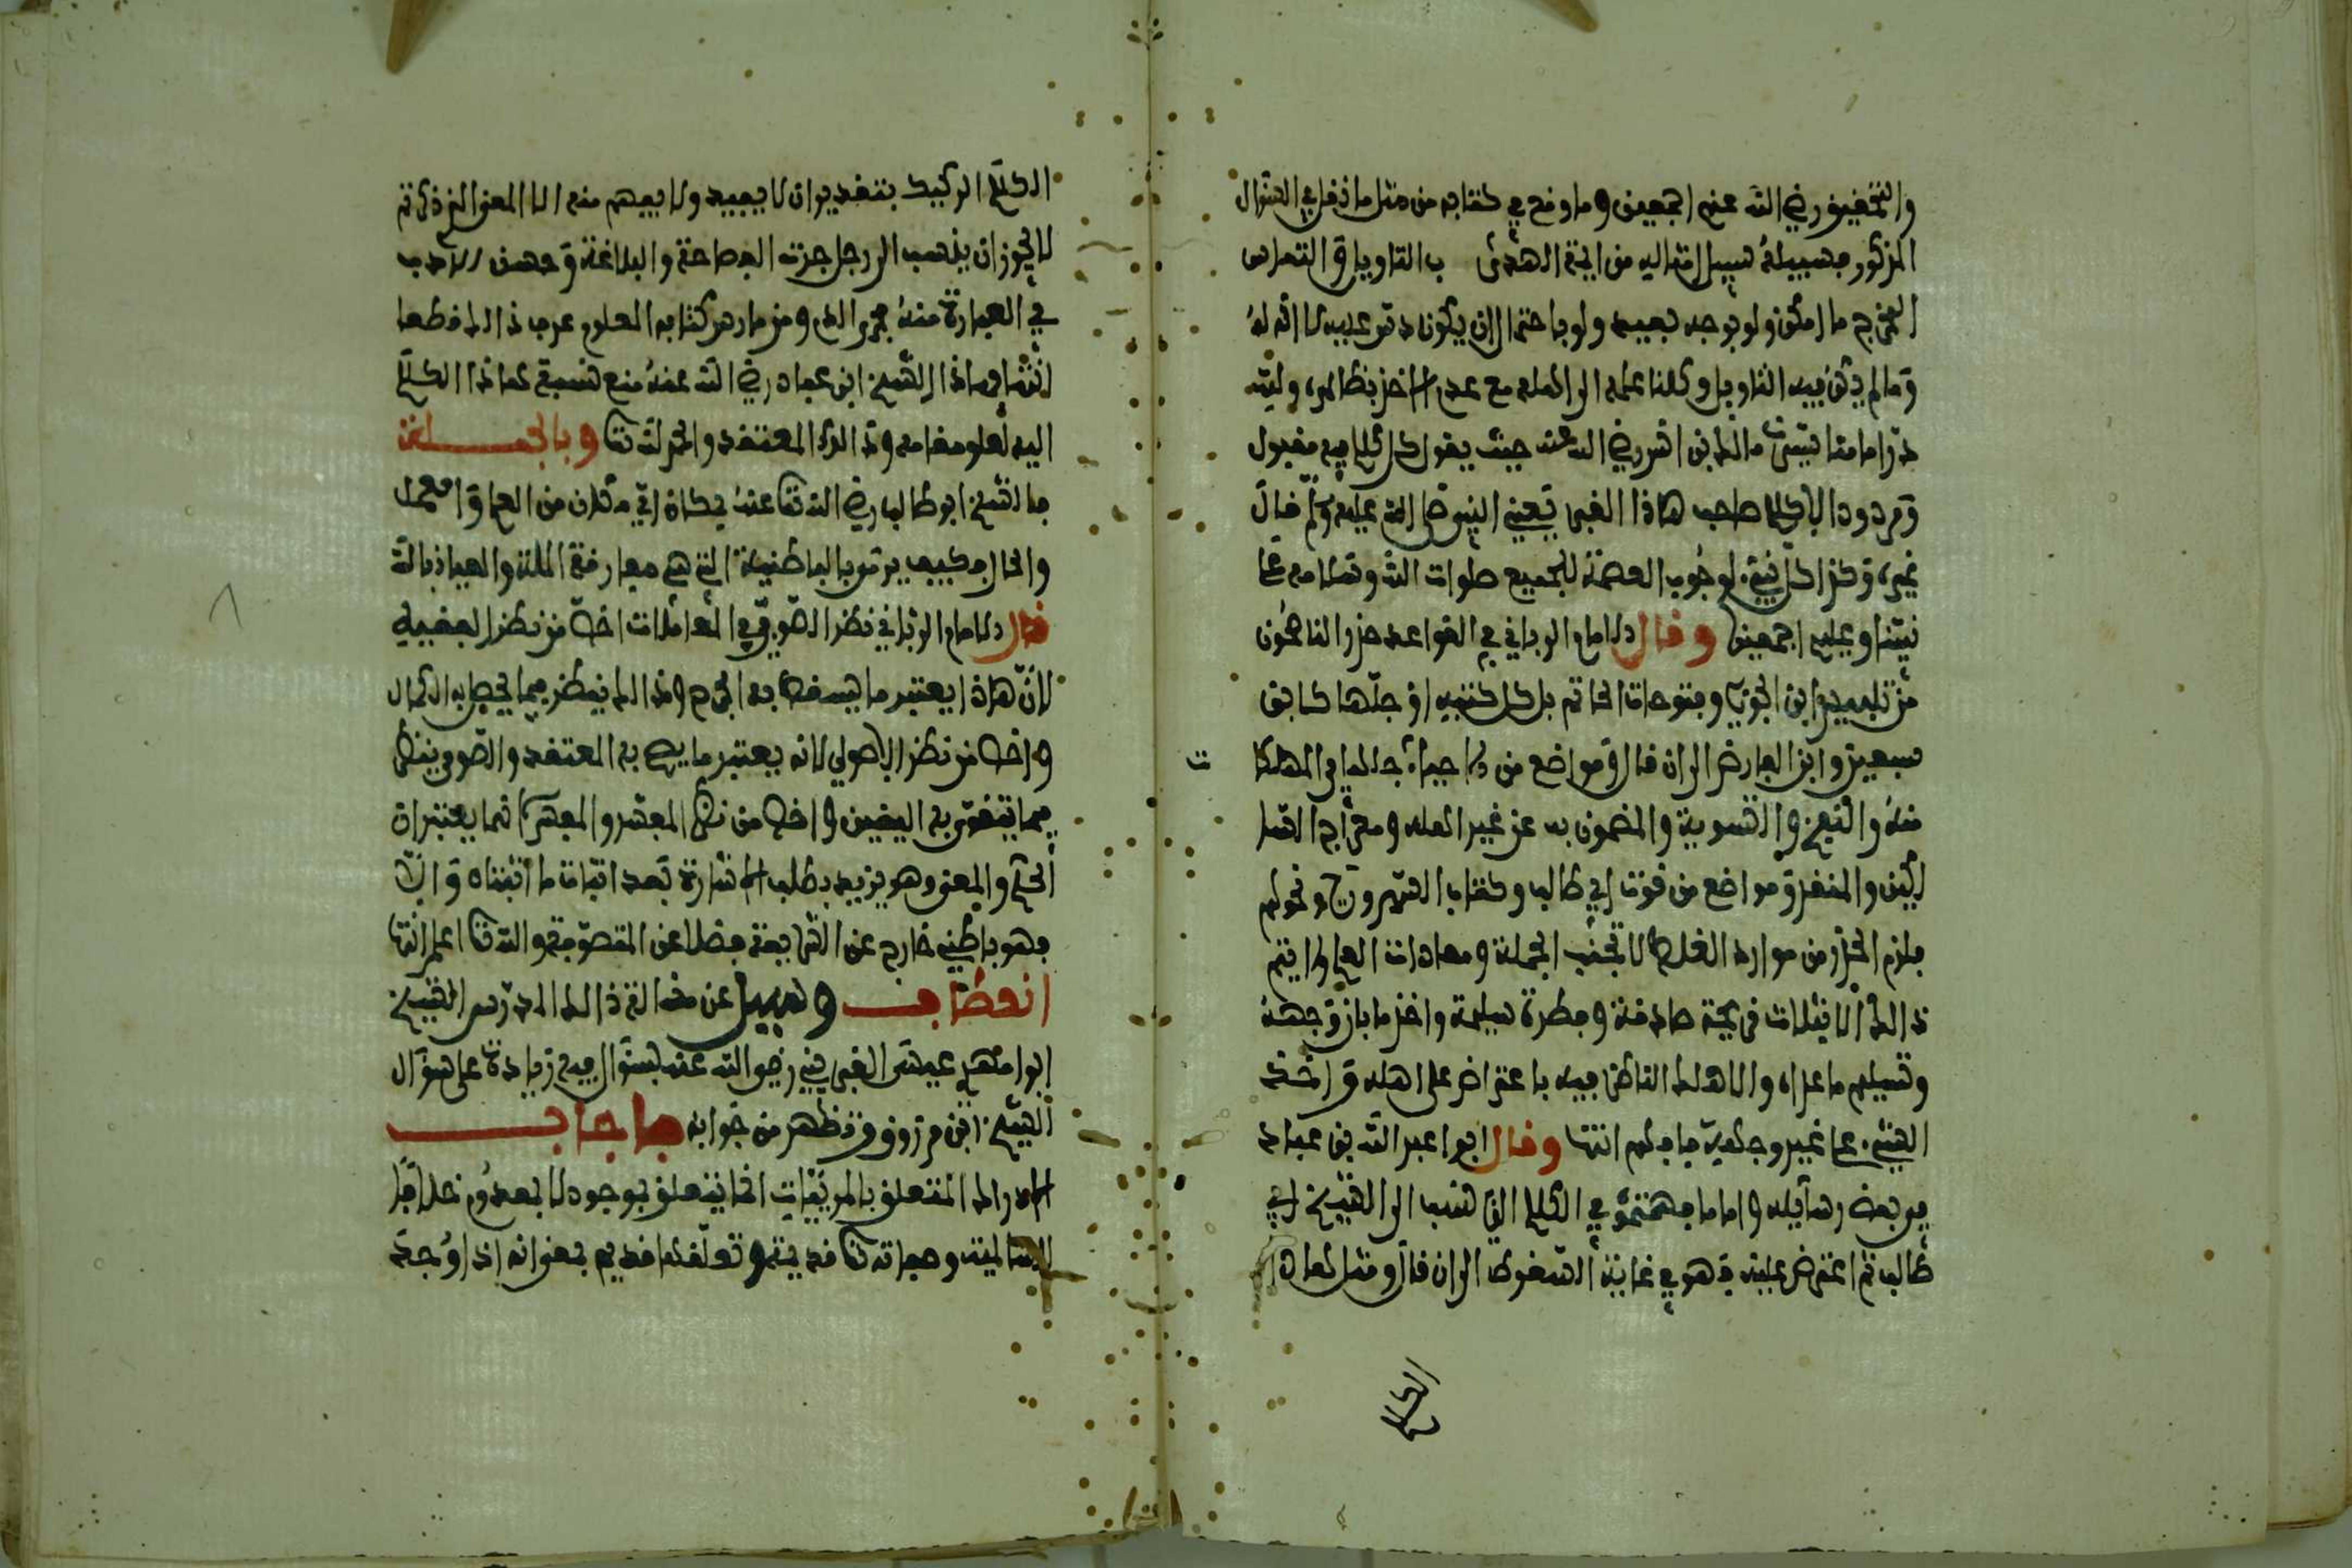 والتحقيق رضي الله عنهم اجمعين وما وقع في كتابه من مثل ما نقل في السؤال
المذكور فسبيله سبيل امثاله من ايمة الهدى ب التاويل والتماس
المخرج ما امكن ولو بوجه بعيد ولو باحتمال ان يكون دس عليه لا انه له
وما لم يمكن فيه التاويل وكلنا علمه الى الله مع عدم الاخذ بظاهره ولله
در امامنا مالك بن انس رضي الله عنه حيث يقول كل كلام فيه مقبول
ومردود الا كلام صاحب هاذا القبر يعني النبي صلى الله عليه وسلم قال
غيره وكذا كل نبي لوجوب العصمة للجميع صلوات الله وسلامه على
نبينا وعليهم اجمعين وقال الامام الرباني في القواعد حذر الناصحون
من تلبيس ابن الجوزي وفتوحات الحاتم بل كل كتبه او جلها كابن
سبعين وابن الفارض الى ان قال ومواضع من الاحياء جلها في المهلكات
منه والنفخ والتسوية والمضنون به على غير اهله ومعراج السالكين
والمنقذ ومواضع من قوت ابي طالب وكتاب السهروردي ونحوهم
فلزم الحذر من موارد الغلط لا تجنب الجملة ومعادات العلم ولا يتم
ذالك الا بثلاث قريحة صادقة وفطرة سليمة واخذ ما بان وجهه
وتسليم ما عداه والا هلك الناظر فيه باعتراض على اهله واخذ
الشيء على غير وجهه فافهم انتها وقال ابوا عبد الله بن عباد
في بعض رسايله واما ما فهمتموه في الكلام الذي نسب الى الشيخ ابي
طالب ثم اعترض عليه فهو في غاية السقوط الى ان قال ومثل هاذا
الكلام
الكلام الركيك بتقدير ان لا يفيد ولا يفهم منه الا المعنى الذي ذكرتم
لا يجوز ان ينسب الى رجل حزت الفصاحة والبلاغة وحسن الادب
في العبارة منه مجرى الدم ومن مارس كتابه المعلوم عرف ذالك قطعا
انتها وهاذا الشيخ ابن عباد رضي الله عنه منع نسبة هاذا الكلام
اليه لعلو مقامه وذالك المعتقد والحمد لله تعالى وبالجملة
فالشيخ ابو طالب رضي الله تعالى عنه بمكان اي مكان من العلم والعمل
والحال فكيف يرمى بالباطنية التي هي مفارقة الملة والعياذ بالله
قال الامام الرباني نظر الصوفي في المعاملات اخص من نظر الفقيه
لان هاذا يعتبر ما يسقط به الحرج وذالك ينظر فيما يحصل به الكمال
واخص من نظر الاصولي لانه يعتبر ما يصح به المعتقد والصوفي ينظر
فيما يتقوى به اليقين واخص من نظر المفسر والمفسر انما يعتبر ان
الحكم والمعنى وهو يزيد بطلب الاشارة بعد اثبات ما اثبتاه والا
فهو باطني خارج عن الشريعة فضلا عن المتصوفة والله تعالى اعلم انتها
انعطاف وسيل عن مسالة ذالك المدرس الشيخ
ابوا مهدي عيسى الغبريني رضي الله عنه بسؤال فيه زيادة على سؤال
الشيخ ابن مرزوق وتظهر من جوابه فاجاب
الادراك المتعلق بالمرئيات انما يتعلق بموجود لا بمعدوم خلافا
للسالمية وصفاته تعالى قديمة وتعلقها قديم بمعنى انه اذا وجد